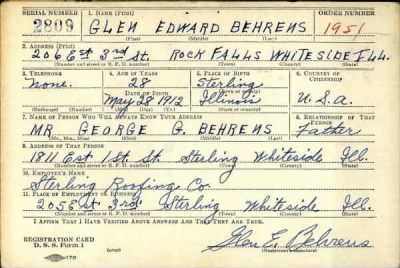 SERIAL NUMBER 1. NAME (Print) ORDER NUMBER
2809 GLEN EDWARD BEHRENS 1951
(First) (Middle) (Last)
2. ADDRESS (Print)
206 Est 3rd St. ROCK FALLS WHITESIDE ILL.
(Number and street or R. F. D. number) (Town) (County) (State)
3. TELEPHONE 4. AGE IN YEARS 5. PLACE OF BIRTH 6. COUNTRY OF CITIZENSHIP
None. 28 Sterling
DATE OF BIRTH (Town or county)
May 28 1912 Illinois U.S.A.
(Exchange) (Number) (Mo.) (Day) (Yr.) (State or country)
7. NAME OF PERSON WHO WILL ALWAYS KNOW YOUR ADDRESS 8. RELATIONSHIP OF THAT PERSON
MR GEORGE G. BEHRENS Father
(Mr., Mrs., Miss) (First) (Middle) (Last)
9. ADDRESS OF THAT PERSON
1811 Est 1st St. Sterling Whiteside Ill.
(Number and street or R. F. D. number) (Town) (County) (State)
10. EMPLOYER'S NAME
Sterling Roofing Co.
11. PLACE OF EMPLOYMENT OR BUSINESS
205 Est 3rd Sterling Whiteside Ill.
(Number and street or R. F. D. number) (Town) (County) (State)
I AFFIRM THAT I HAVE VERIFIED ABOVE ANSWERS AND THAT THEY ARE TRUE.
REGISTRATION CARD
D. S. S. Form 1 Glen E. Behrens